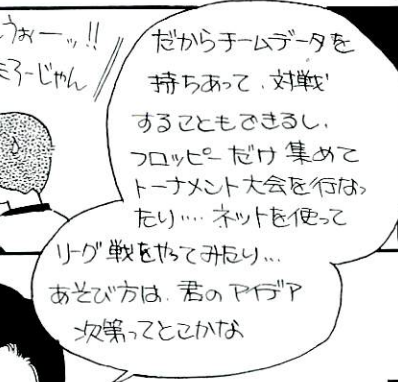 だからチームデータを
持ちあって、対戦
することもできるし、
フロッピーだけ集めて
トーナメント大会を行なっ
たり‥‥ネットを使って
リーグ戦をやってみたり…
あそび方は、君のアイデア
次第ってとこかな
うぉーッ!!
ろーじゃん